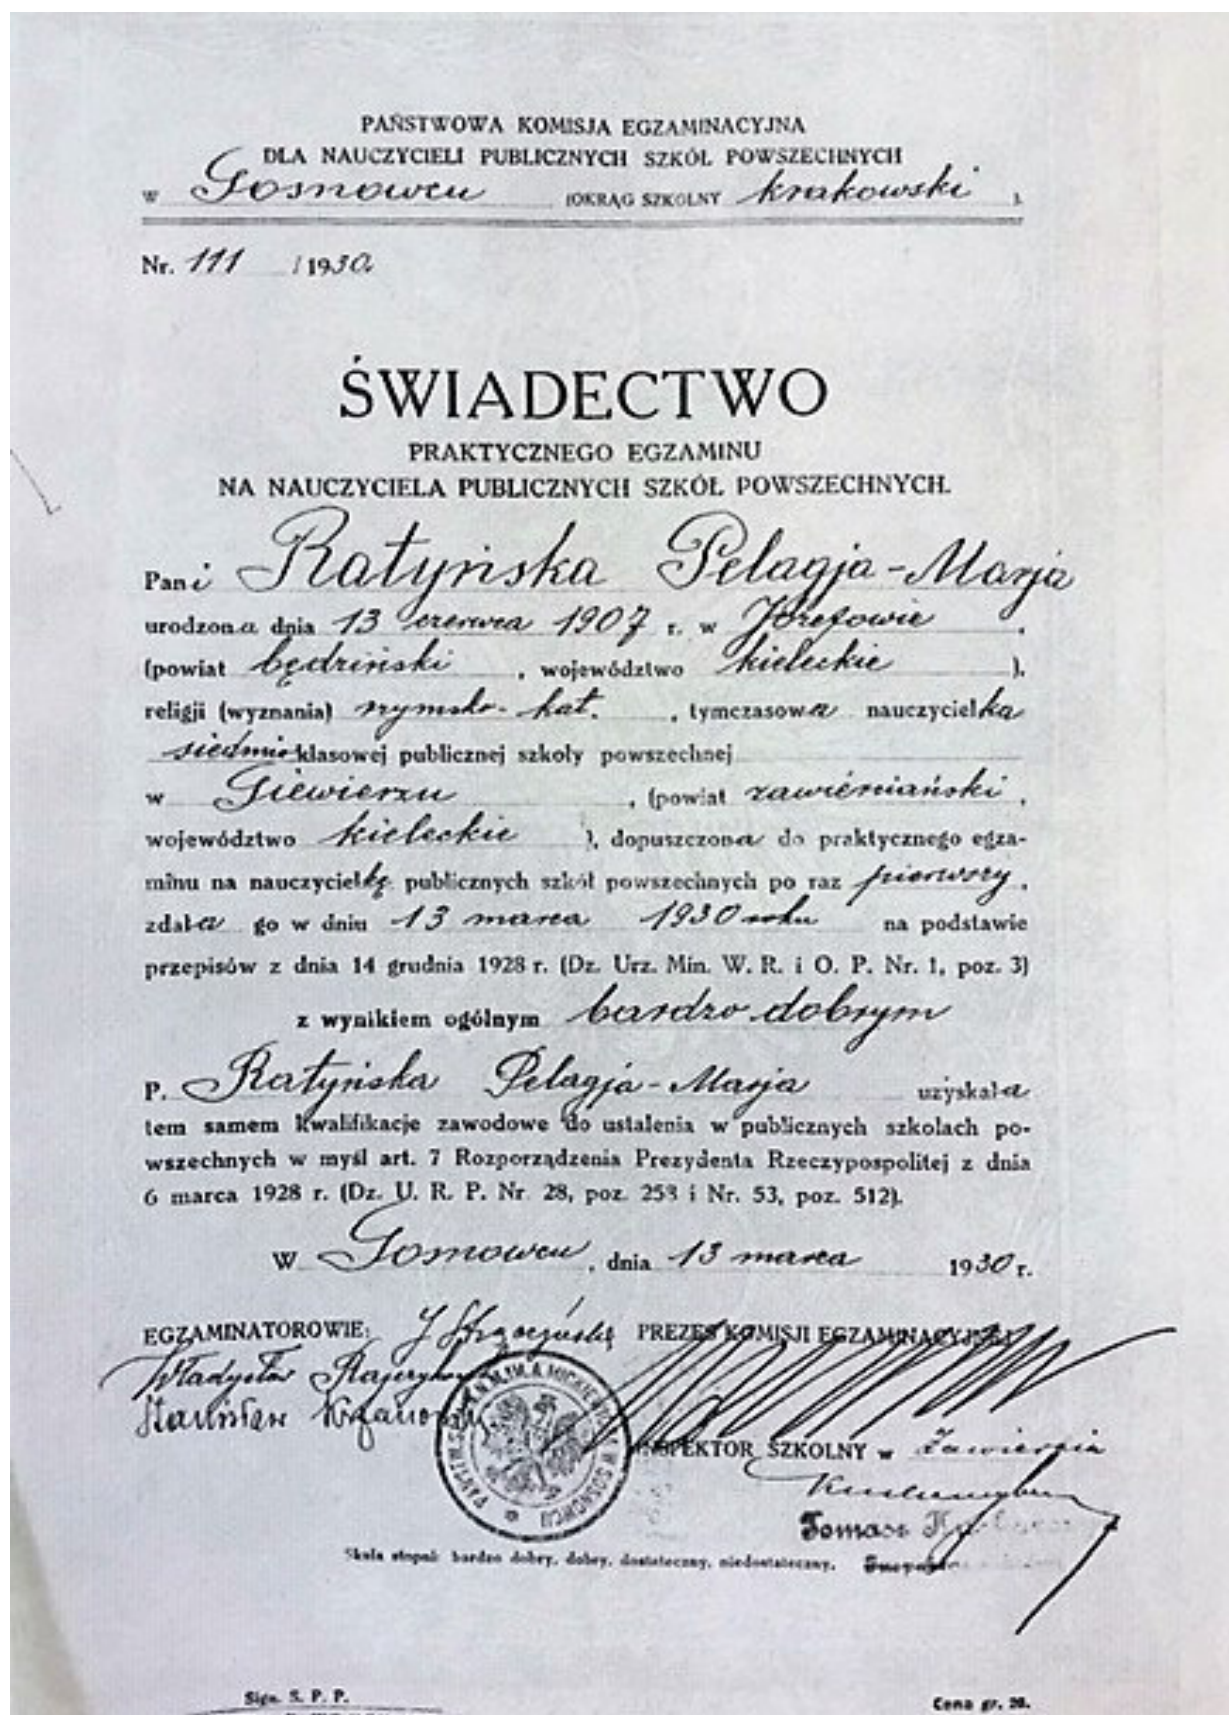 PAŃSTWOWA KOMISJA EGZAMINACYJNA
DLA NAUCZYCIELI PUBLICZNYCH SZKÓŁ POWSZECHNYCH
w Sosnowcu (OKRĄG SZKOLNY krakowski ).
Nr. 111 / 1930.
ŚWIADECTWO
PRAKTYCZNEGO EGZAMINU
NA NAUCZYCIELA PUBLICZNYCH SZKÓŁ POWSZECHNYCH.
Pani Ratyńska Pelagja-Marja
urodzona dnia 13 czerwca 1907 r. w Józefowie ,
(powiat będziński , województwo kieleckie ),
religji (wyznania) rzymsko-kat. , tymczasowa nauczycielka
siedmioklasowej publicznej szkoły powszechnej
w Siewierzu , (powiat zawierciański ,
województwo kieleckie ), dopuszczona do praktycznego egza-
minu na nauczycielkę publicznych szkół powszechnych po raz pierwszy,
zdała go w dniu 13 marca 1930 roku na podstawie
przepisów z dnia 14 grudnia 1928 r. (Dz. Urz. Min. W. R. i O. P. Nr. 1, poz. 3)
z wynikiem ogólnym bardzo dobrym
P. Ratyńska Pelagja-Marja uzyskała
tem samem kwalifikacje zawodowe do ustalenia w publicznych szkołach po-
wszechnych w myśl art. 7 Rozporządzenia Prezydenta Rzeczypospolitej z dnia
6 marca 1928 r. (Dz. U. R. P. Nr. 28, poz. 258 i Nr. 53, poz. 512).
W Sosnowcu, dnia 13 marca 1930 r.
EGZAMINATOROWIE: PREZES KOMISJI EGZAMINACYJNEJ
Władysław
Stanisław
INSPEKTOR SZKOLNY w Zawierciu
Tomasz
Skala stopni: bardzo dobry, dobry, dostateczny, niedostateczny.
Sign. S. P. P.
Cena gr. 20.